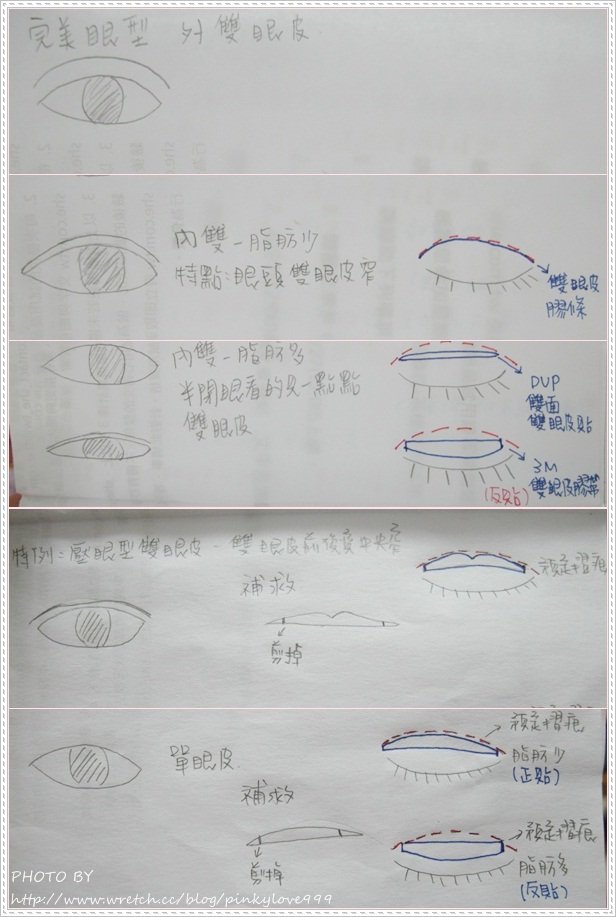 完美眼型 外雙眼皮
內雙－脂肪少
特點:眼頭雙眼皮窄
雙眼皮
膠條
內雙－脂肪多
半閉眼看的見一點點
雙眼皮
DUP
雙面
雙眼皮貼
3M
雙眼皮膠帶
(反貼)
特例:壓眼型雙眼皮－雙眼皮前後寬中央窄
補救
剪掉
預定摺痕
單眼皮
補救
剪掉
預定摺痕
脂肪少
(正貼)
預定摺痕
脂肪多
(反貼)
PHOTO BY
http://www.wretch.cc/blog/pinkylove999